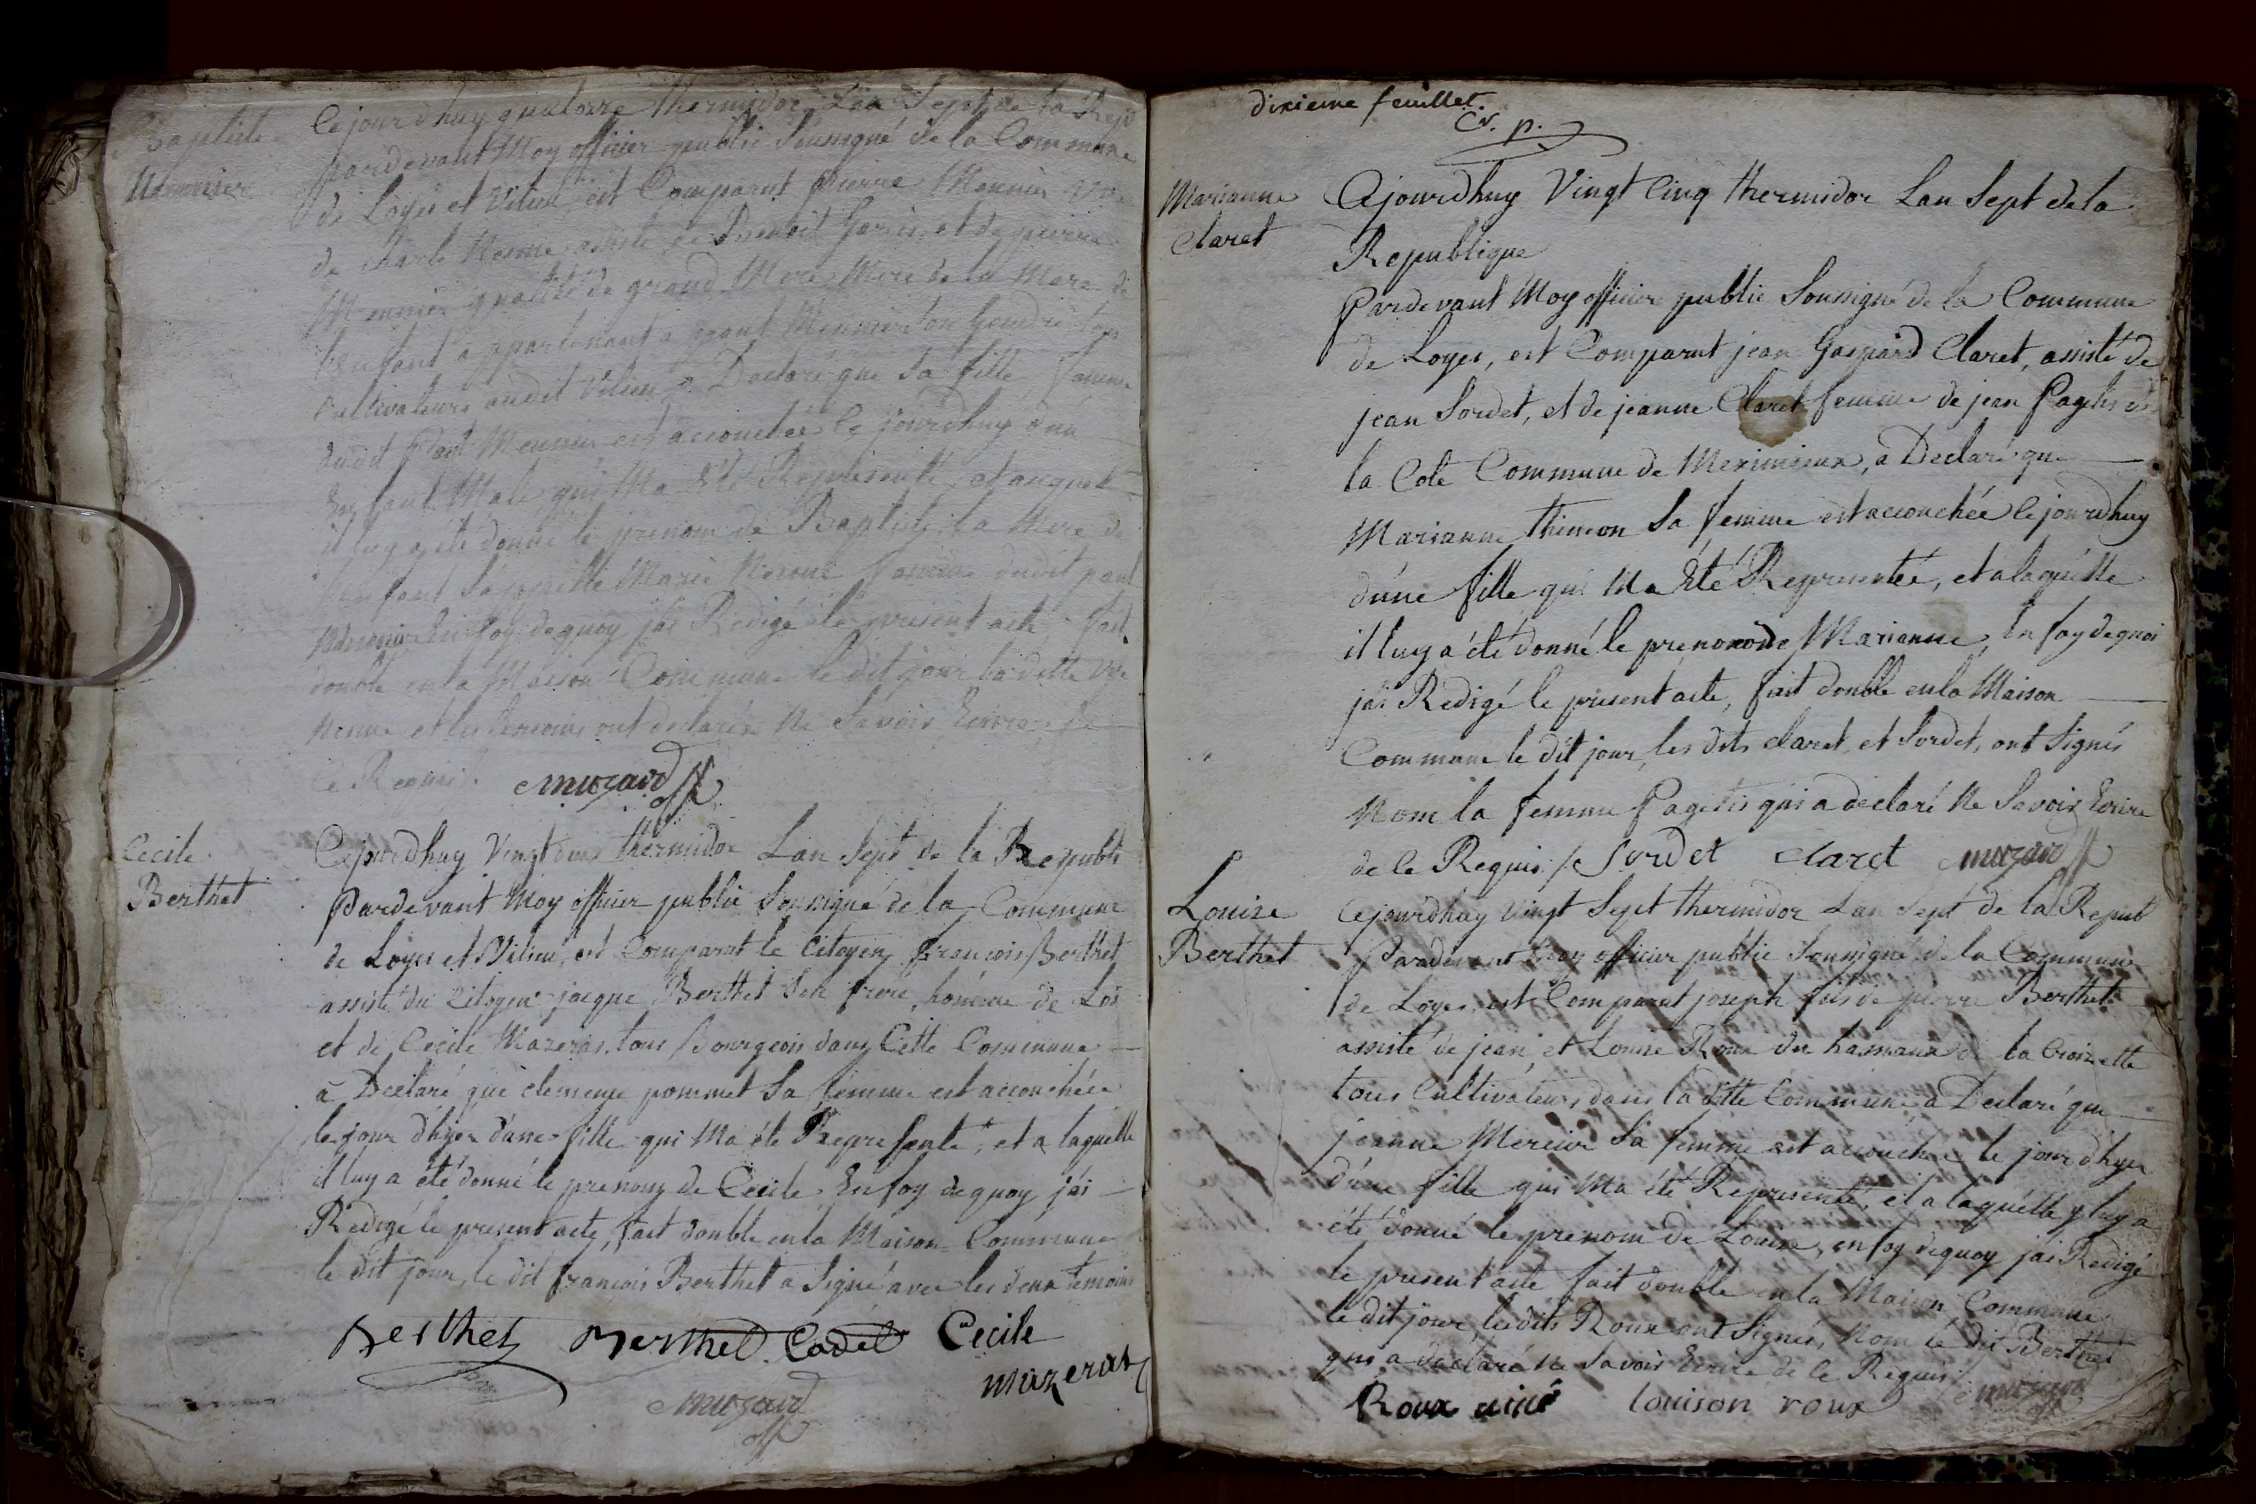 Baptiste
Mennier
Cejourdhuy quatorze thermidor Lan Sept de la Rep
pardevant Moy officier public Soussigné de la Commune
de Loyes et Vilieu, est Comparut pierre Mennier
de assisté de Benoit et de pierre
Mennier qualité de grand Mere Mere de la Mere de
lenfant appartenant a Mennier son Gendre tous
Cultivateurs audit Vilieu a Declaré que Sa fille femme
dudit Mennier est accouchée Cejourdhuy dun
Enfant Male qui Ma Eté Representé, et auquel
il luy a été donné le prenom de Baptiste, la Mere de
lenfant Sapelle Marie femme dudit
Mennier En foy de quoy jai Redigé le present acte fait
double en la Maison Commune le dit jour la ditte Vve
et les temoins ont declarés Ne Savoir Ecrire de
ce Requis
muzard off
Cecile
Berthet
Cejourdhuy Vingt deux thermidor Lan Sept de la Republi
Pardevant Moy officier public Soussigné de la Commune
de Loyes et Vilieu, est Comparut le Citoyen francois Berthet
assisté du Citoyen jacque Berthet Son frere, homme de Loi
et de Cecile Mazeras, tous Bourgeois dans Cette Commune
a Declaré que clemence pommet Sa femme est accouchée
le jour dhyer dune fille qui Ma été Representé, et a laquelle
il luy a été donné le prenom de Cecile En foy de quoy jai
Redigé le present acte, fait double en la Maison Commune
le dit jour, le dit francois Berthet a Signé avec les deux temoins
Berthet Berthet Cadet Cecile
mazerat
muzard
off
dixieme feuillet.
Marianne
Claret
Cejourdhuy Vingt Cinq thermidor Lan Sept de la
Republique
Pardevant Moy officier public Soussigné de la Commune
de Loyes, est Comparut jean Gaspard Claret, assisté de
jean Sordet, et de jeanne Claret femme de jean Pagetis de
la Cote Commune de Meximieux, a Declaré que
Marianne thimon Sa femme est accouchée Cejourdhuy
dune fille qui Ma Eté Representée, et a laquelle
il luy a été donné le prenom de Marianne, En foy de quoi
jai Redigé le present acte, fait double en la Maison
Commune le dit jour, les dits Claret, et Sordet, ont Signés
Nom la femme Pagetis qui a declaré Ne Savoir Ecrire
de ce Requis /. Sordet Claret muzard off
Louise
Berthet
Cejourdhuy Vingt Sept thermidor Lan Sept de la Republ
Pardevant Moy officier public Soussigné de la Commune
de Loyes est Comparut joseph fils de pierre Berthet
assisté de jean, et Louise Roux du hamaux de la Croizette
tous Cultivateurs dans la ditte Commune a Declaré que
jeanne Mercier Sa femme est accouchée le jour dhyer
dune fille qui Ma été Representé, et a laquelle y luy a
été donné le prenom de Louise, en foy de quoy jai Redigé
le present acte fait double en la Maison Commune
le dit jour, les dits Roux ont Signés, Nom le dit Berthet
qui a declaré Ne Savoir Ecrire de ce Requis
Roux ainé louison roux muzard
off